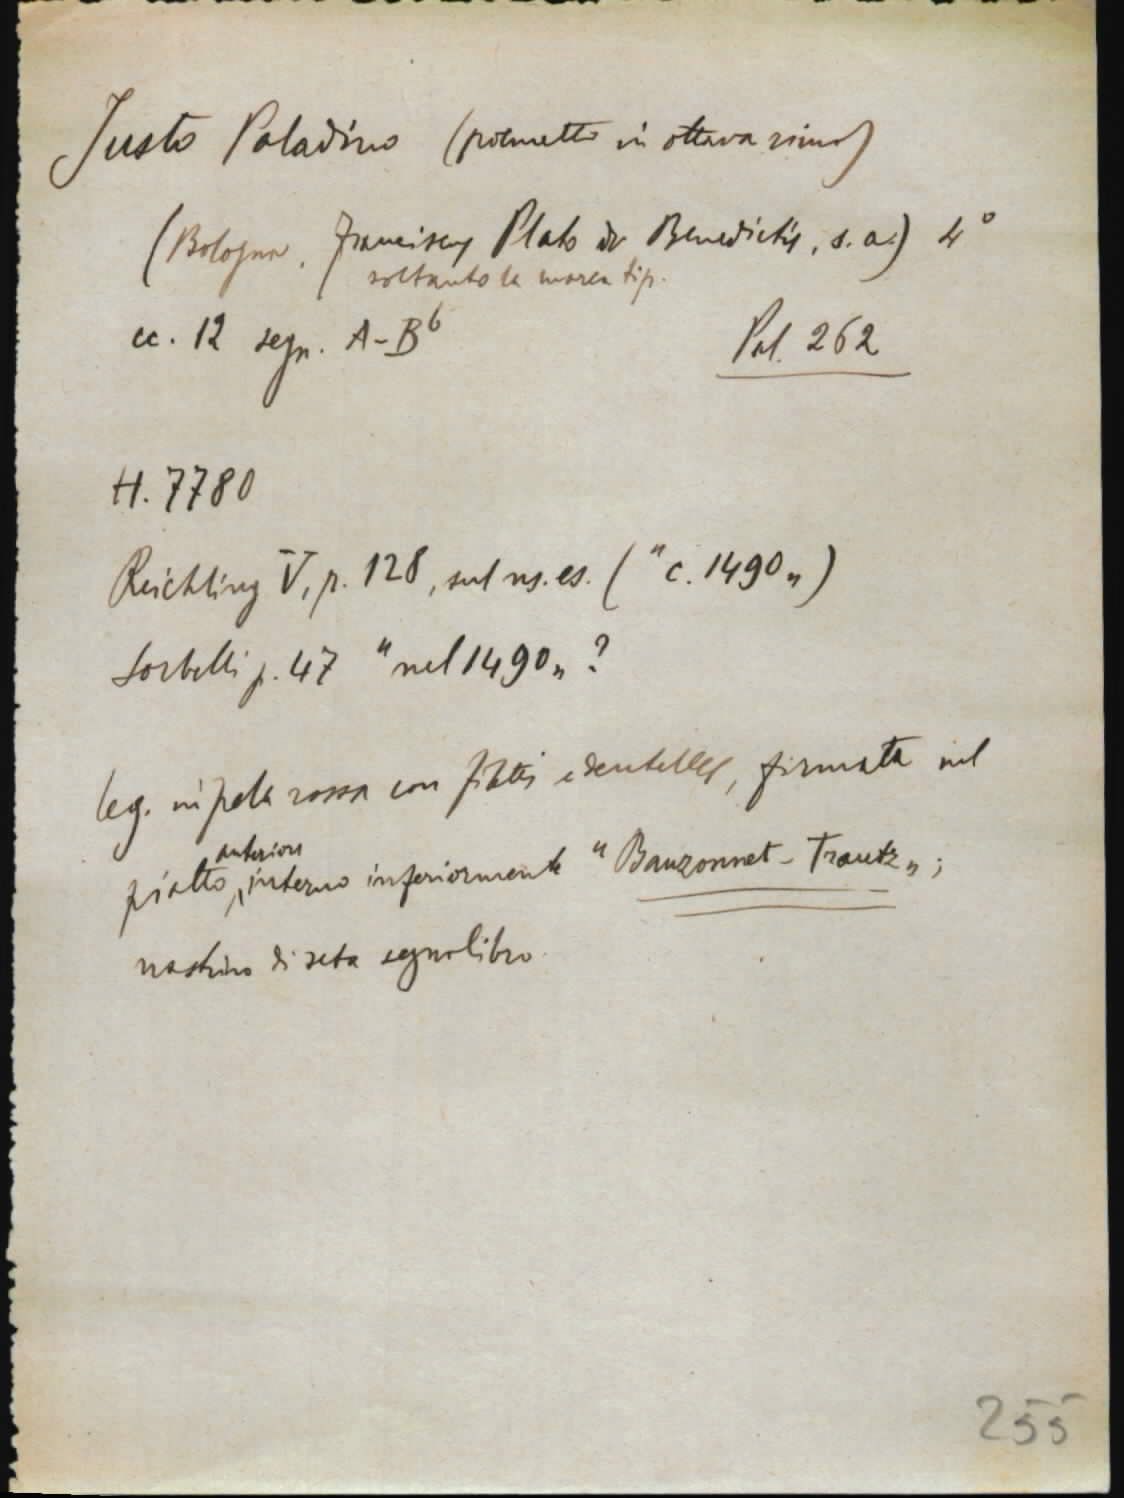 Justo Paladino (poemetto in ottava rima)
(Bologna, Franciscus Plato de Benedictis, s. a.) 4°
soltanto la marca tip.
cc. 12 segn. A-B⁶
Pal. 262
H. 7780
Reichling V, p. 128, sul ns. es. ("c. 1490")
Sorbelli p. 47 "nel 1490" ?
leg. in pelle rossa con filetti e dentelles, firmata nel
anteriore
piatto interno inferiormente "Bauzonnet - Trautz";
nastrino di seta segnalibro.
255